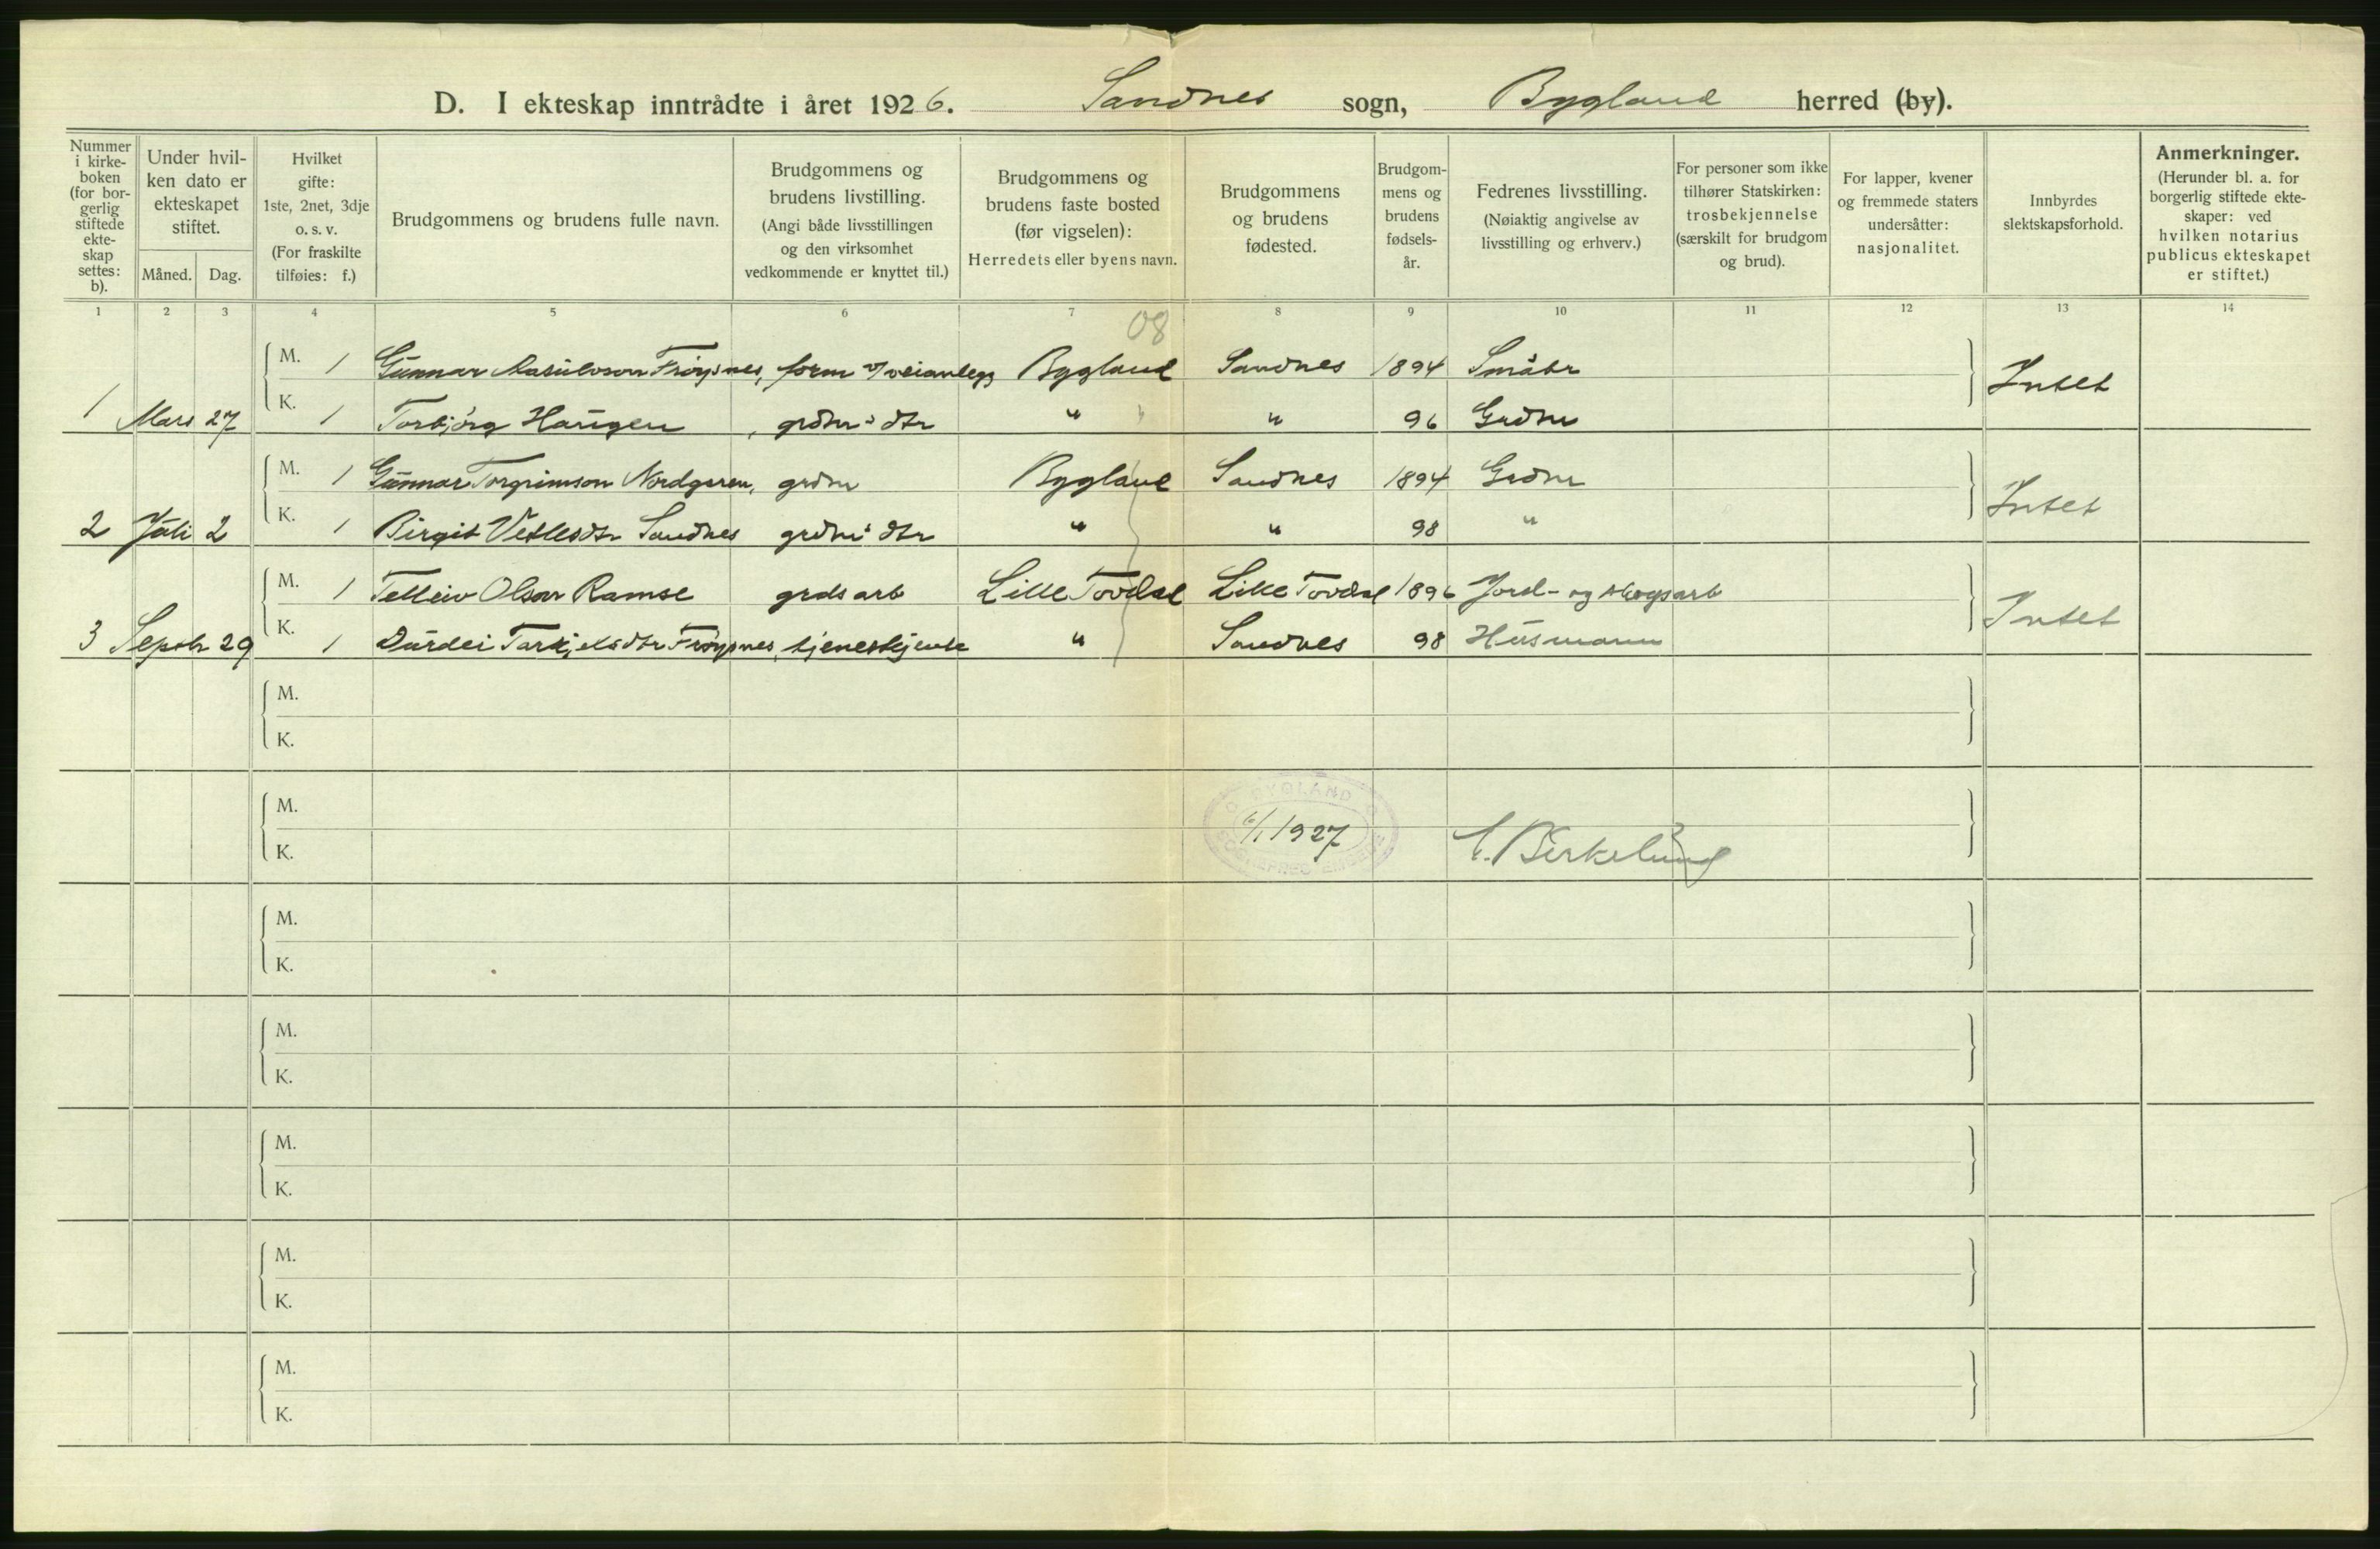 D. I ekteskap inntrådte i året 1926. Sandnes sogn, Bygland herred (by).
Nummer i kirke-boken (for bor-gerlig stiftede ekte-skap settes: b).
Under hvil-ken dato er ekteskapet stiftet.
Måned. Dag.
Hvilket gifte: 1ste, 2net, 3dje o. s. v. (For fraskilte tilføies: f.)
Brudgommens og brudens fulle navn.
Brudgommens og brudens livstilling. (Angi både livsstillingen og den virksomhet vedkommende er knyttet til.)
Brudgommens og brudens faste bosted (før vigselen): Herredets eller byens navn.
Brudgommens og brudens fødested.
Brudgom-mens og brudens fødsels-år.
Fedrenes livsstilling. (Nøiaktig angivelse av livsstilling og erhverv.)
For personer som ikke tilhører Statskirken: trosbekjennelse (særskilt for brudgom og brud).
For lapper, kvener og fremmede staters undersåtter: nasjonalitet.
Innbyrdes slektskapsforhold.
Anmerkninger. (Herunder bl. a. for borgerlig stiftede ekte-skaper: ved hvilken notarius publicus ekteskapet er stiftet.)
1 2 3 4 5 6 7 8 9 10 11 12 13 14
08
M. 1 Gunnar Frøysnes, form v/ veianlegg Bygland Sandnes 1894 Småbr Intet
1 Mars 27 K. 1 Torbjørg Haugen, grdbr's dtr " " 96 Grdbr
M. 1 Gunnar Torgrimson Nordgaren, grdbr Bygland Sandnes 1894 Grdbr Intet
2 Juli 2 K. 1 Birgit Vetlesdtr Sandnes grdbr's dtr " " 98 "
M. 1 Telleiv Olson Ramse grdsarb Lille Tovdal Lille Tovdal 1896 Jord- og skogsarb Intet
3 Septbr 29 K. 1 Durdei Tarkjelsdtr Frøysnes, tjenestejente " Sandnes 98 Husmann
M.
K.
M.
K.
BYGLAND SOGNEPRESTEMBEDE
6/1 1927
E. Birkelund
M.
K.
M.
K.
M.
K.
M.
K.
M.
K.